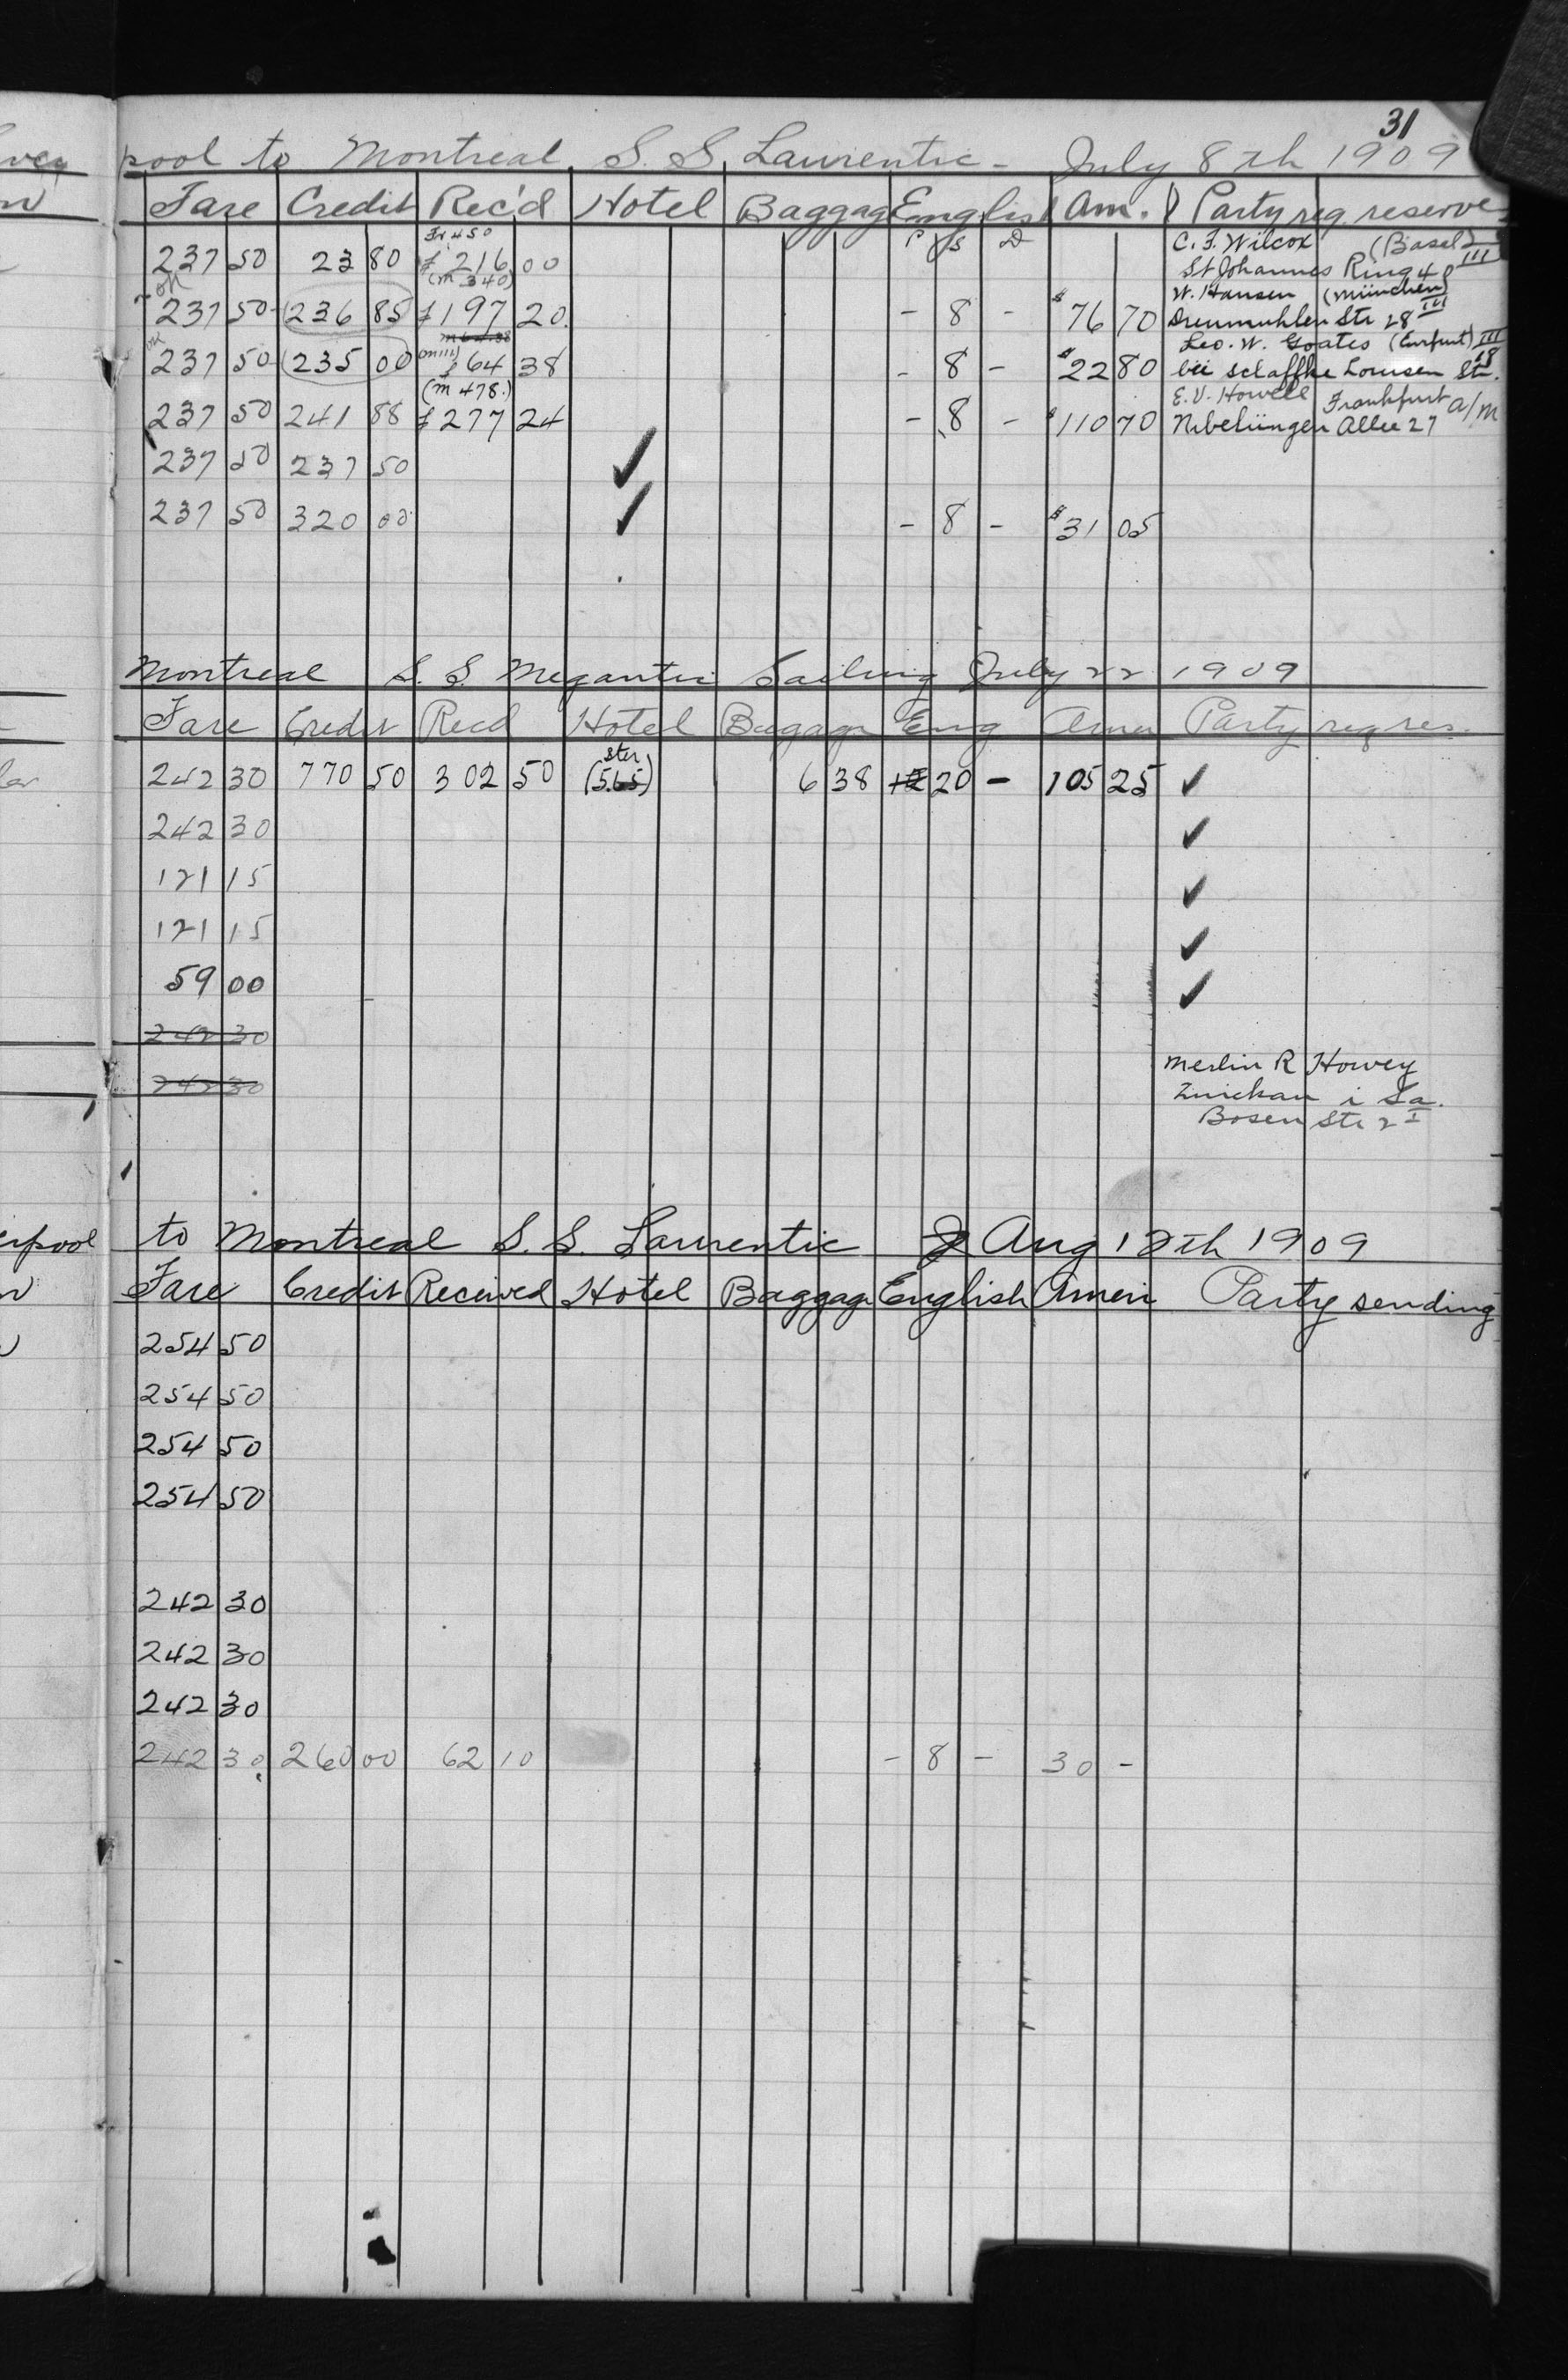 31
pool to Montreal, S. S. Laurentic - July 8th 1909
Fare Credit Rec'd Hotel Baggag English Am. Party req reserve
P S D
237 50 23 80 Fr 450 £ 216 00 C. F. Wilcox (Basel)
St Johannes Ring 40 III
ok 237 50 236 85 (M 340) £ 197 20 - 8 - $76 70 W. Hansen (München)
Dreimuhlen Str 28 III
ok 237 50 235 00 £ 64 38 - 8 - $22 80 Leo. W. Goates (Erfurt) III
bei Schaffke Louisen Str. 18
237 50 241 88 (M 478.) £ 277 24 - 8 - $110 70 E. V. Howell Frankfurt a/M
Nibelüngen Allee 27
237 50 237 50 ✓
237 50 320 00 ✓ - 8 - $31 05
Montreal S. S. Megantic Sailing July 22 1909
Fare Credit Recd Hotel Baggage Eng Amer Party req res.
242 30 770 50 302 50 Ster (5.65) 6 38 20 - 105 25 ✓
242 30 ✓
121 15 ✓
121 15 ✓
59 00 ✓
242 30
242 30
Merlin R Hovey
Zwickau i Sa.
Bosen Str 2 I
erpool to Montreal S. S. Laurentic Aug 12th 1909
Fare Credit Received Hotel Baggage English Ameri Party sending
254 50
254 50
254 50
254 50
242 30
242 30
242 30
242 30 260 00 62 10 - 8 - 30 -